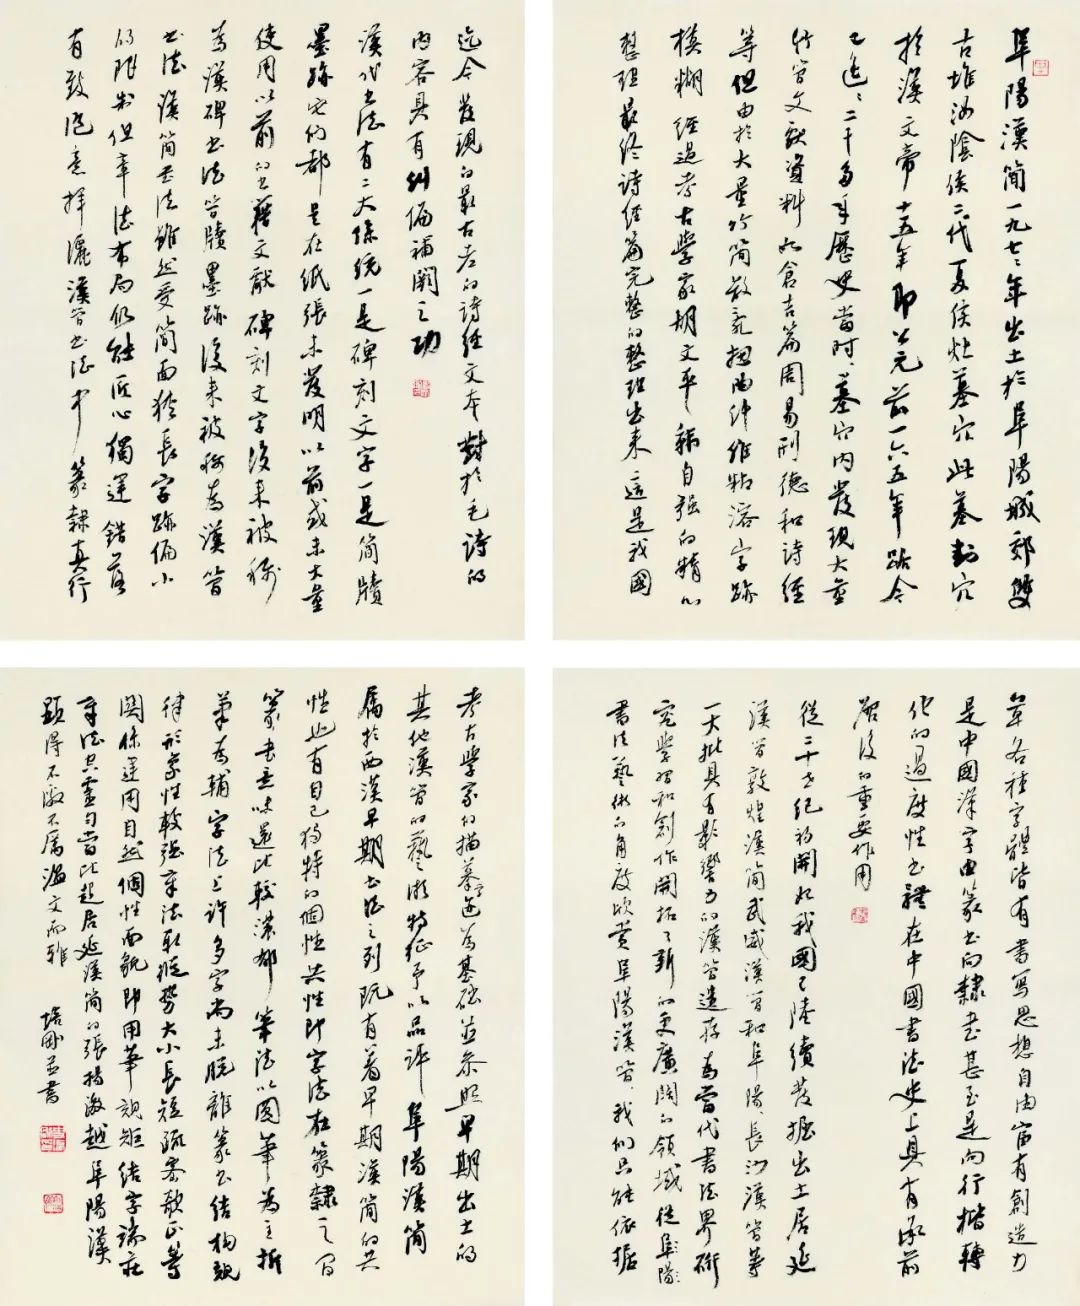 阜陽漢簡一九七七年出土於阜陽城郊雙
古堆汝陰侯二代夏侯灶墓穴此墓封穴
於漢文帝十五年即公元前一六五年距今
已近二千多年歷史當时墓穴內發現大量
竹簡文獻資料如倉吉篇周易刑德和詩經
等但由於大量竹簡散亂扭曲纤維粘溶字跡
模糊經過考古學家胡文平韩自强的精心
整理最終詩經篇完整的整理出来這是我國
迄今發現的最古老的詩經文本對於毛詩的
内容具有糾偏補闕之功
漢代书法有二大係統一是碑刻文字一是簡牘
墨跡它们都是在紙張未發明以前或未大量
使用以前的书籍文獻碑刻文字後来被称
為漢碑书法竹牘墨跡後来被称為漢簡
书法漢簡书法雖然受簡面狹長字跡偏小
的限制但章法布局仍能匠心獨運錯落
有致恣意揮灑漢簡书法中篆隸真行
草各種字體皆有書寫思想自由富有創造力
是中國漢字由篆书向隸书甚至是向行楷轉
化的過度性书體在中國書法史上具有承前
啟後的重要作用
從二十世紀初開始我國已陸續發掘出土居延
漢簡敦煌漢簡武威漢簡和阜陽、長沙漢簡等
一大批具有影響力的漢簡遺存為當代書法界研
究學習和創作開拓了新的更廣闊的領域從阜陽
書法藝術的角度欣賞阜陽漢簡、我们只能依據
考古學家的描摹迹為基础並參照早期出土的
其他漢簡的藝術特征予以品評阜陽漢簡
属於西漢早期书法之列既有着早期漢簡的共
性也有自己獨特的個性共性即字法在篆隸之間
篆书意味還比較濃郁筆法以圓筆為主折
筆為輔字法上许多字尚未脱離篆书结构規
律形象性較强章法取縱势大小長短疏密欹正等
関係運用自然個性面貌即用筆規矩结字端莊
章法興盡勻當比起居延漢簡的張揚激越阜陽漢
顯得不激不厲温文而雅 培剛並書